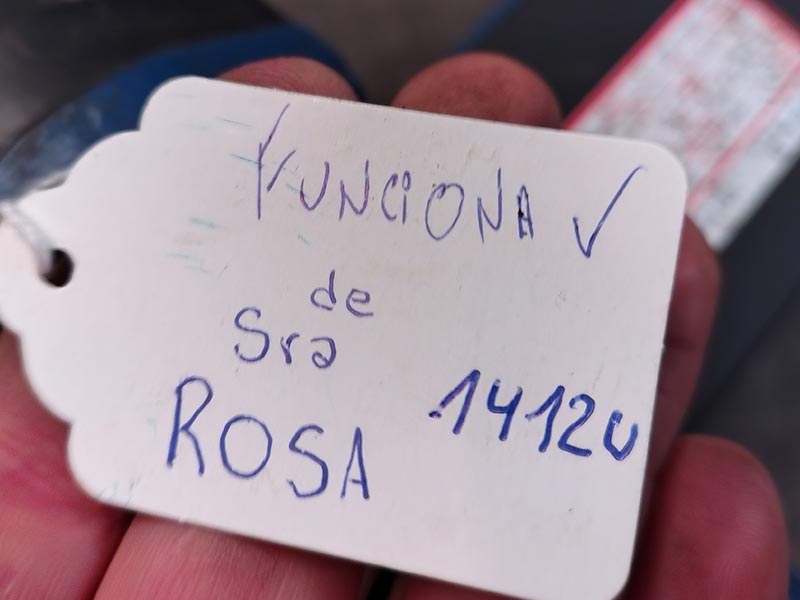 FUNCIONA ✓
de
Sra
ROSA
1412u